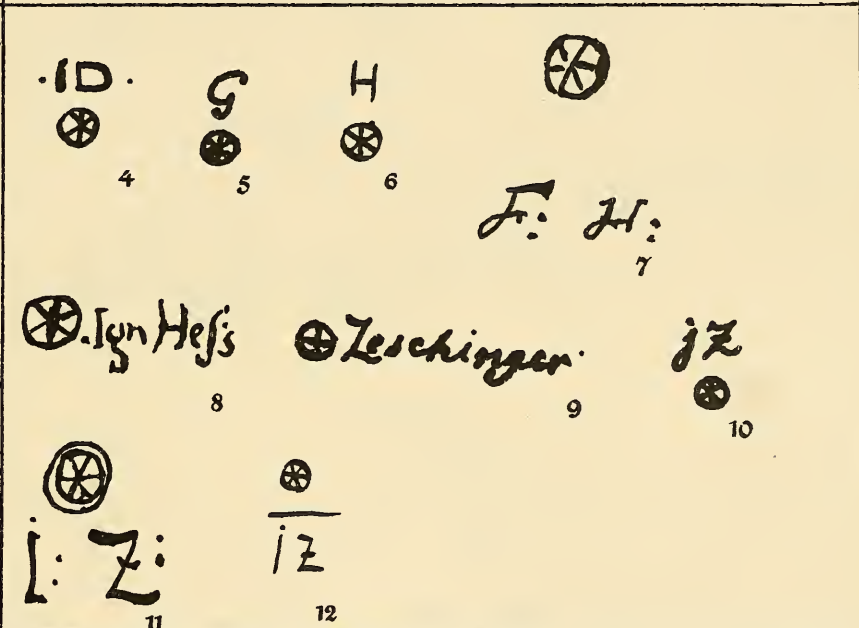 ·ID·
4
G
5
H
6
F: H:
7
.Ign Hess
8
Zeschinger.
9
jZ
10
I: Z:
11
iZ
12